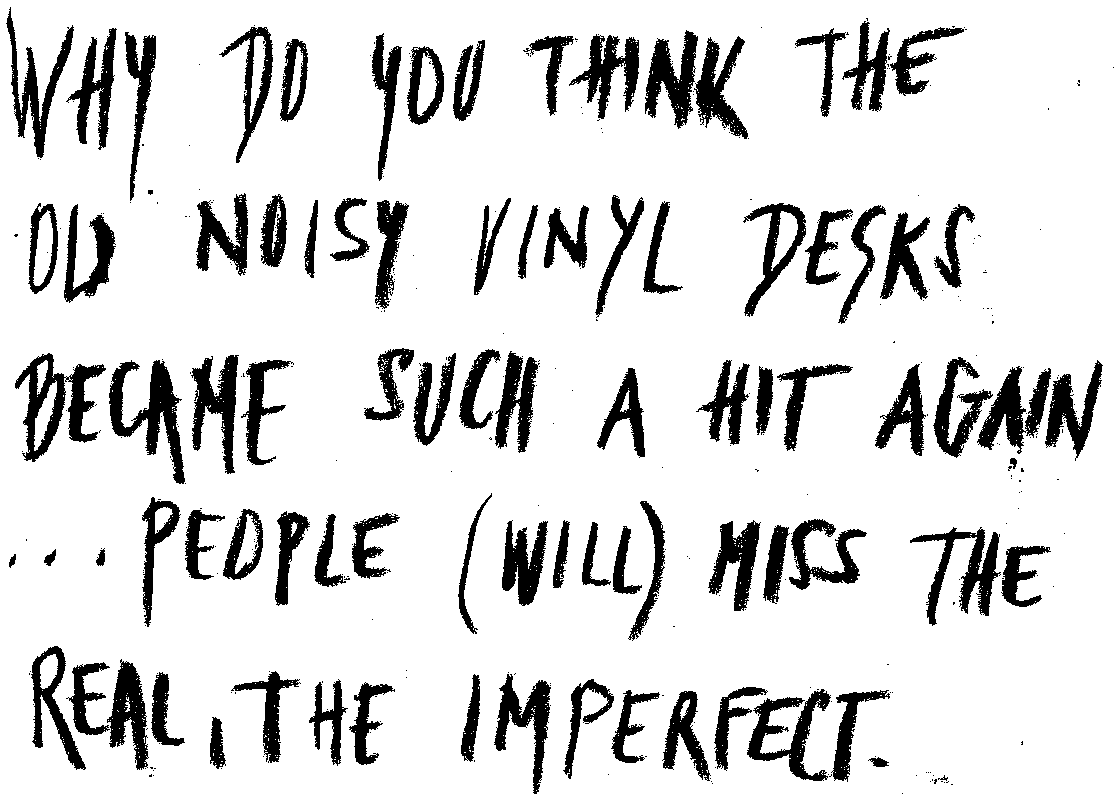 WHY DO YOU THINK THE
OLD NOISY VINYL DESKS
BECAME SUCH A HIT AGAIN
... PEOPLE (WILL) MISS THE
REAL, THE IMPERFECT.